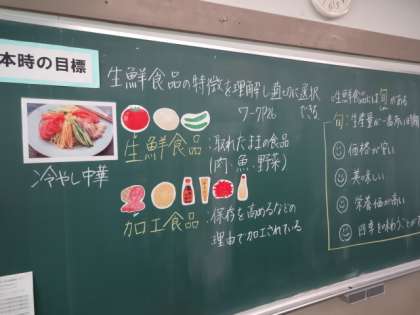 本時の目標
生鮮食品の特徴を理解し適切に選択
ワークP26 できる
冷やし中華
生鮮食品：取れたままの食品
(肉・魚・野菜)
加工食品：保存を高めるなどの
理由で加工されている
生鮮食品には旬がある
旬：生産量が一番多い時期
価格が安い
美味しい
栄養価が高い
四季を味わうことが